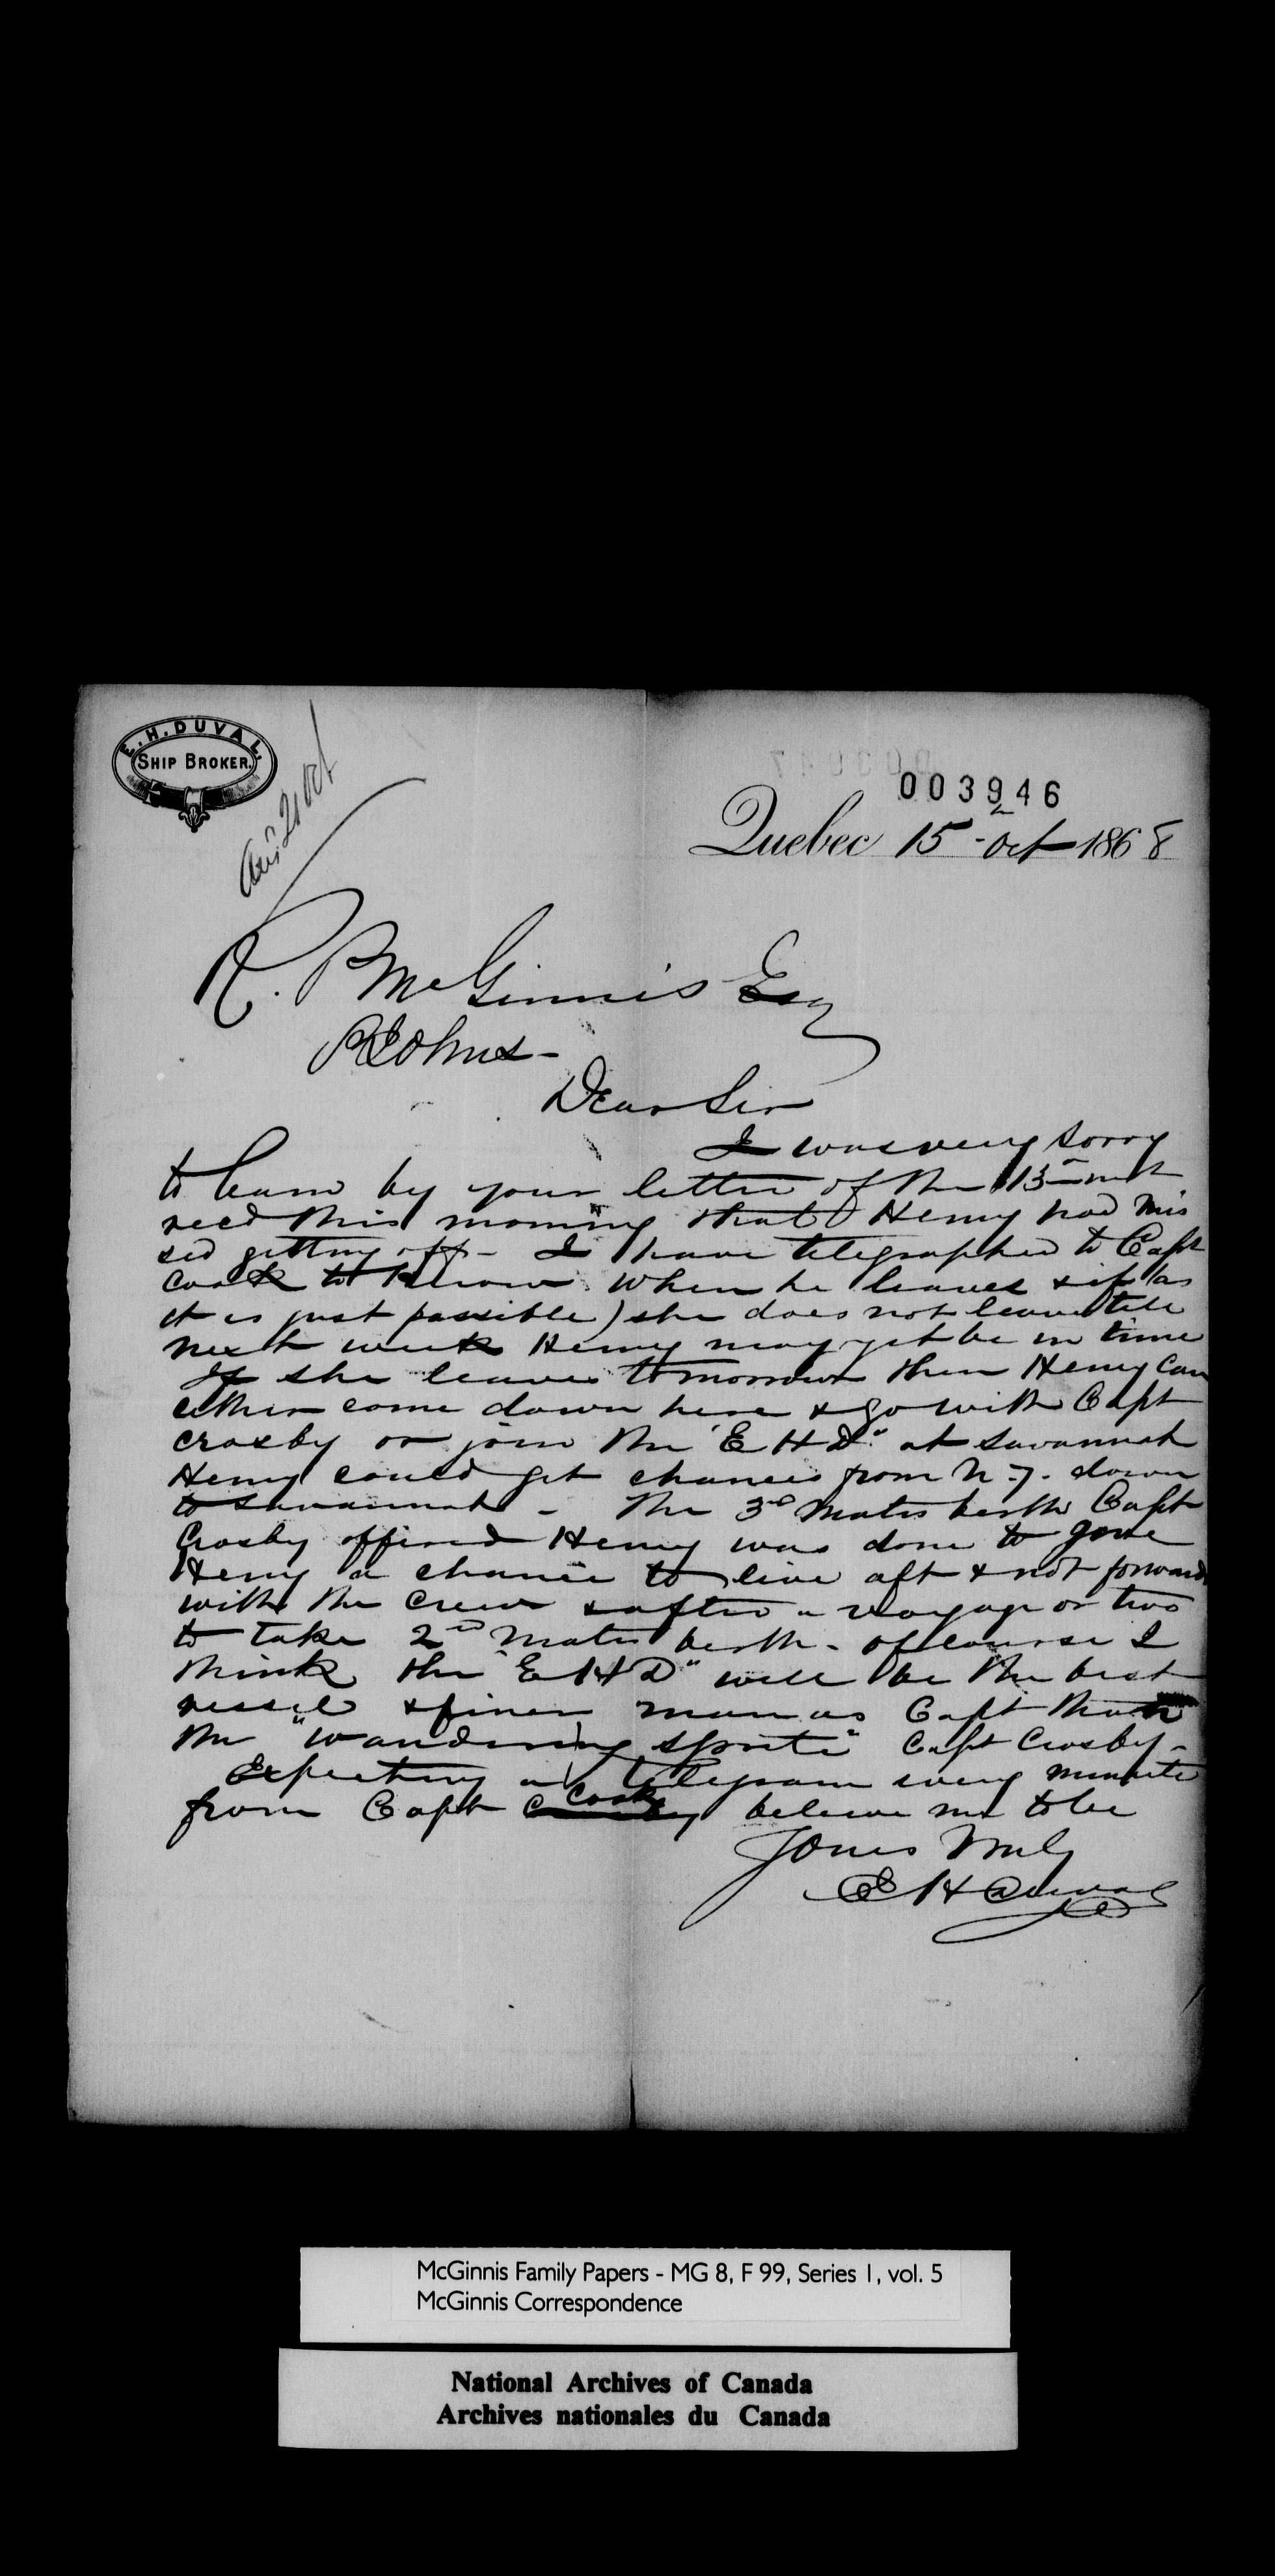 E. H. DUVAL.
SHIP BROKER.
Ans 21 Oct
003946
Quebec 15 - Oct 1868
R. B McGinnis Esq
St Johns -
Dear Sir
I was very sorry
to learn by your letter of the 13 inst
recd this morning that Henry had mis
sed getting off - I have telegraphed to Capt
Cook to know when he leaves & if (as
it is just possible) she does not leave till
next week Henry may yet be in time
If she leaves tomorrow then Henry can
either come down here & go with Capt
Crosby or join the "E H D" at Savannah
Henry could get chances from N.Y. down
to Savannah - The 3rd Mates berth Capt
Crosby offered Henry was done to give
Henry a chance to live aft & not forward
with the crew & after a voyage or two
to take 2nd Mates berth - of course I
think the "E H D" will be the best
vessel & finer man as Capt than
the "Wandering Sprite" Capt Crosby -
Expecting a telegram every minute
from Capt Cook believe me to be
Yours truly
E H Duval
McGinnis Family Papers - MG 8, F 99, Series 1, vol. 5
McGinnis Correspondence
National Archives of Canada
Archives nationales du Canada